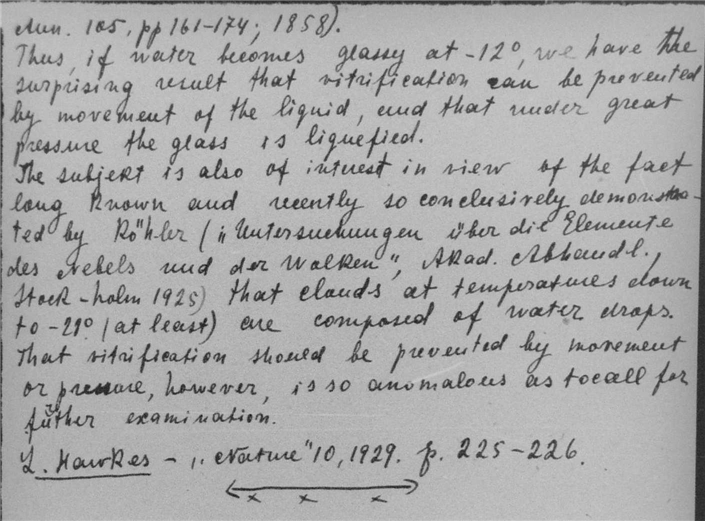 Ann. 105, pp 161-174; 1858).
Thus, if water becomes glassy at -12°, we have the
surprising result that vitrification can be prevented
by movement of the liquid, and that under great
pressure the glass is liquefied.
The subjekt is also of interest in view of the fact
long known and recently so conclusively demonstra-
ted by Köhler („Untersuchungen über die Elemente
des Nebels und der Wolken", Akad. Abhandl.,
Stock-holm 1925) that clouds at temperatures down
to -29° (at least) are composed of water drops.
That vitrification should be prevented by movement
or pressure, however, is so anomalous as to call for
further examination.
L. Hawkes - „Nature" 10, 1929. p. 225-226.